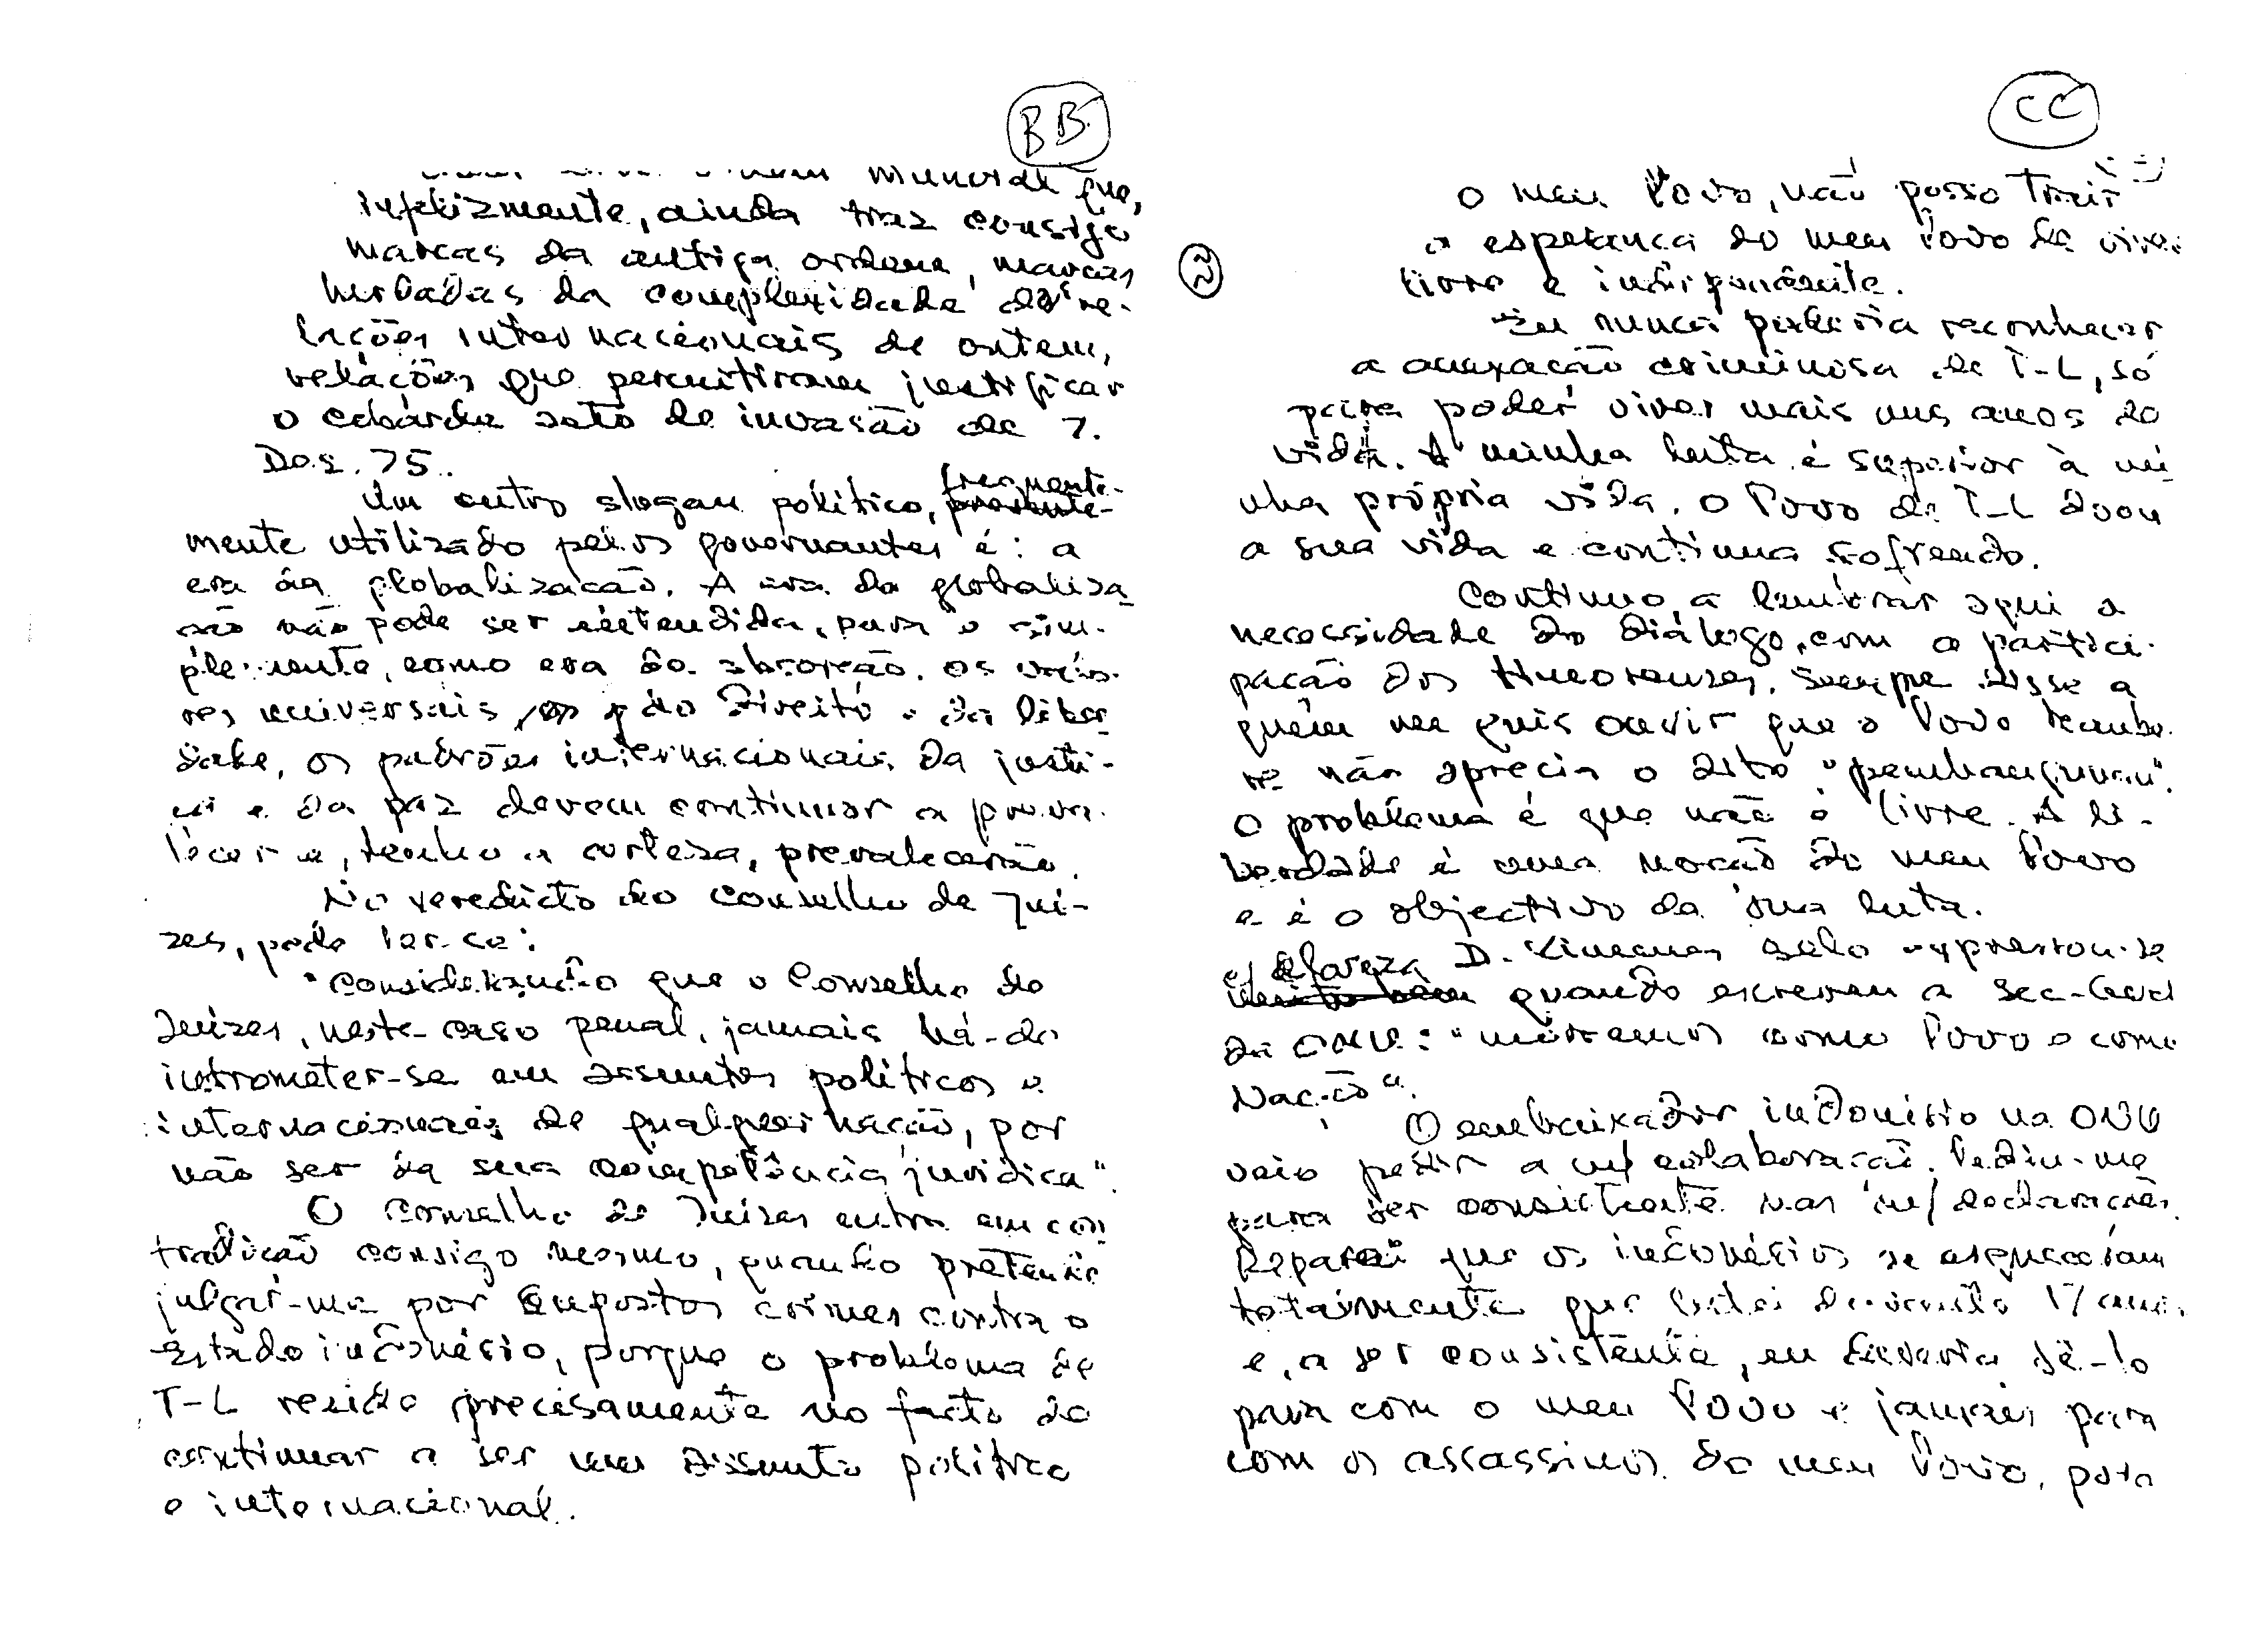 BB
mundial que,
infelizmente, ainda traz consigo
marcas da antiga ordem, marcas
herdadas da complexidade das re-
lações internacionais de ontem,
relações que permitiram justificar
o cobarde acto de invasão de 7.
Dez. 75.
Um outro slogan político, frequente-
mente utilizado pelos governantes é: a
era da globalização. A era da globaliza-
ção não pode ser entendida, pura e sim-
plesmente, como era da absorção. Os valo-
res universais do Direito e da liber-
dade, os padrões internacionais da justi-
ça e da paz devem continuar a preva-
lecer e, tenho a certeza, prevalecerão.
No veredicto do Conselho de Juí-
zes, pode ler-se:
"Considerando que o Conselho de
Juízes, neste caso penal, jamais há-de
intrometer-se em assuntos políticos e
internacionais de qualquer nação, por
não ser da sua competência jurídica".
O Conselho de Juízes entra em con-
tradição consigo mesmo, quando pretende
julgar-me por supostos crimes contra o
Estado indonésio, porque o problema de
T-L reside precisamente no facto de
continuar a ser um assunto político
e internacional.
CC
2
o meu Povo, não posso trair
a esperança do meu Povo de viver
livre e independente.
Eu nunca poderia reconhecer
a anexação criminosa de T-L, só
para poder viver mais uns anos de
vida. A minha luta é superior à mi-
nha própria vida. O Povo de T-L doou
a sua vida e continua sofrendo.
Continuo a lembrar aqui a
necessidade do diálogo, com a partici-
pação dos timorenses. Sempre disse a
quem me quis ouvir que o Povo Maube-
re não aprecia o dito "pembangunan".
O problema é que não é livre. A li-
berdade é uma noção do meu Povo
e é o objectivo da sua luta.
c/ clareza D. Ximenes Belo expressou-se
quando escreveu a Sec-Geral
da ONU: "morremos como Povo e como
Nação".
O embaixador indonésio na ONU
veio pedir a m/ colaboração. Pediu-me
para ser consistente nas m/ declarações.
Reparei que os indonésios se esqueceram
totalmente que lutei durante 17 anos
e, a ser consistente, eu deveria sê-lo
para com o meu Povo e jamais para
com os assassinos do meu Povo, para